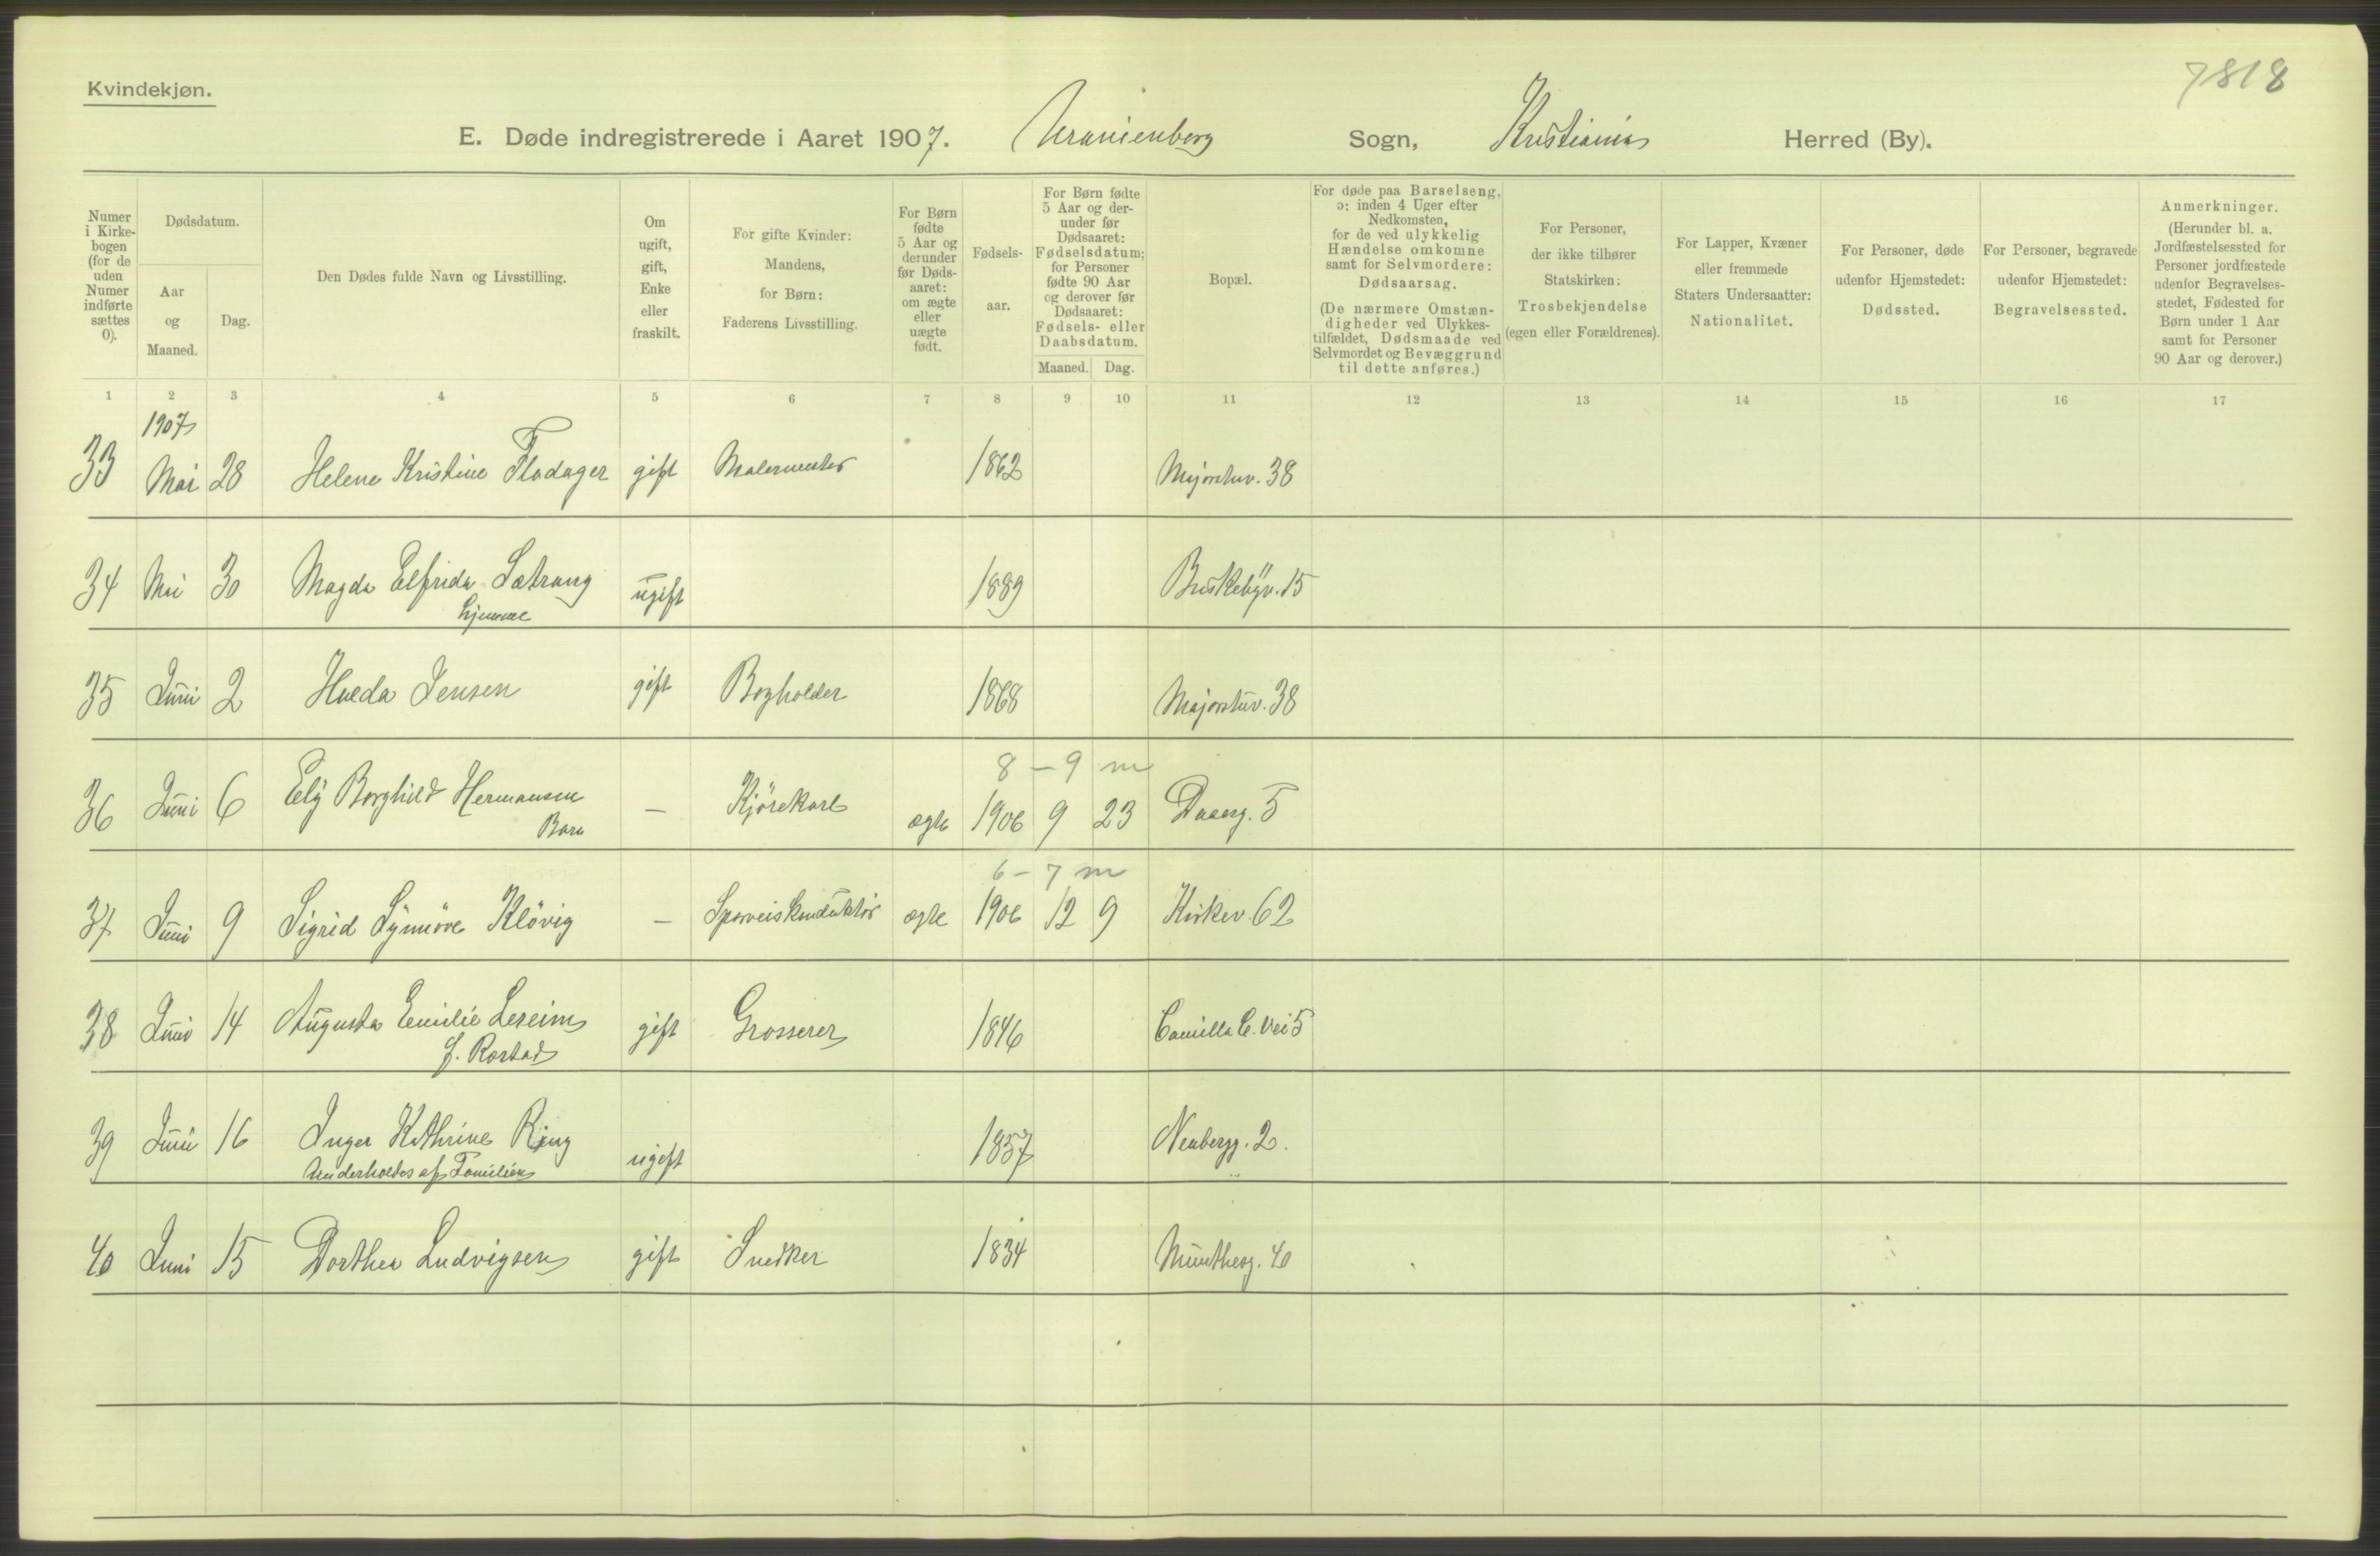 Kvindekjøn.
7818
E. Døde indregistrerede i Aaret 1907. Uranienberg Sogn, Kristiania Herred (By).
Numer i Kirkebogen (for de uden Numer indførte sættes 0).
Dødsdatum.
Aar og Maaned.
Dag.
Den Dødes fulde Navn og Livsstilling.
Om ugift, gift, Enke eller fraskilt.
For gifte Kvinder: Mandens, for Børn: Faderens Livsstilling.
For Børn fødte 5 Aar og derunder før Dødsaaret: om ægte eller uægte født.
Fødselsaar.
For Børn fødte 5 Aar og derunder før Dødsaaret: Fødselsdatum; for Personer fødte 90 Aar og derover før Dødsaaret: Fødsels- eller Daabsdatum.
Maaned. Dag.
Bopæl.
For døde paa Barselseng, ɔ: inden 4 Uger efter Nedkomsten, for de ved ulykkelig Hændelse omkomne samt for Selvmordere: Dødsaarsag.
(De nærmere Omstændigheder ved Ulykkestilfældet, Dødsmaade ved Selvmordet og Bevæggrund til dette anføres.)
For Personer, der ikke tilhører Statskirken: Trosbekjendelse (egen eller Forældrenes).
For Lapper, Kvæner eller fremmede Staters Undersaatter: Nationalitet.
For Personer, døde udenfor Hjemstedet: Dødssted.
For Personer, begravede udenfor Hjemstedet: Begravelsessted.
Anmerkninger.
(Herunder bl. a. Jordfæstelsessted for Personer jordfæstede udenfor Begravelsesstedet, Fødested for Børn under 1 Aar samt for Personer 90 Aar og derover.)
1 2 3 4 5 6 7 8 9 10 11 12 13 14 15 16 17
1907
33 Mai 28 Helene Kristine Fladager gift Malermester 1862 Majorstuv. 38
34 Mai 30 Magda Elfrida Sætrang ugift 1889 Briskebyv. 15
hjemme
35 Juni 2 Hulda Jensen gift Bogholder 1868 Majorstuv. 38
8 - 9 m
36 Juni 6 Ely Borghild Hermansen - Kjørekarl ægte 1906 9 23 Daaeg. 5
Barn
6 - 7 m
37 Juni 9 Sigrid Synnöve Klövig - Sporveiskonduktör ægte 1906 12 9 Kirkev. 62
38 Juni 14 Augusta Emilie Lereim gift Grosserer 1846 Camilla C. vei 5
f. Rostad
39 Juni 16 Inger Kathrine Ring ugift 1857 Neubergg. 2.
Underholdes af Familien
40 Juni 15 Dorthea Ludvigsen gift Snedker 1834 Munthesg. 40